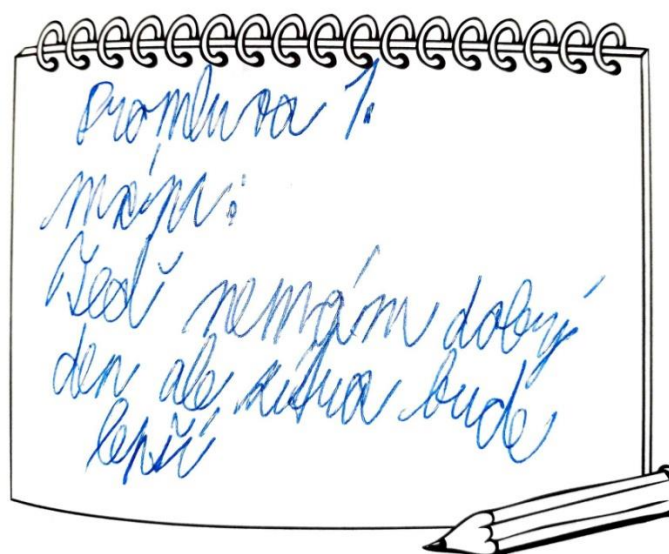 promluva 1.
mám:
Teď nemám dobrý
den ale zítra bude
lepší